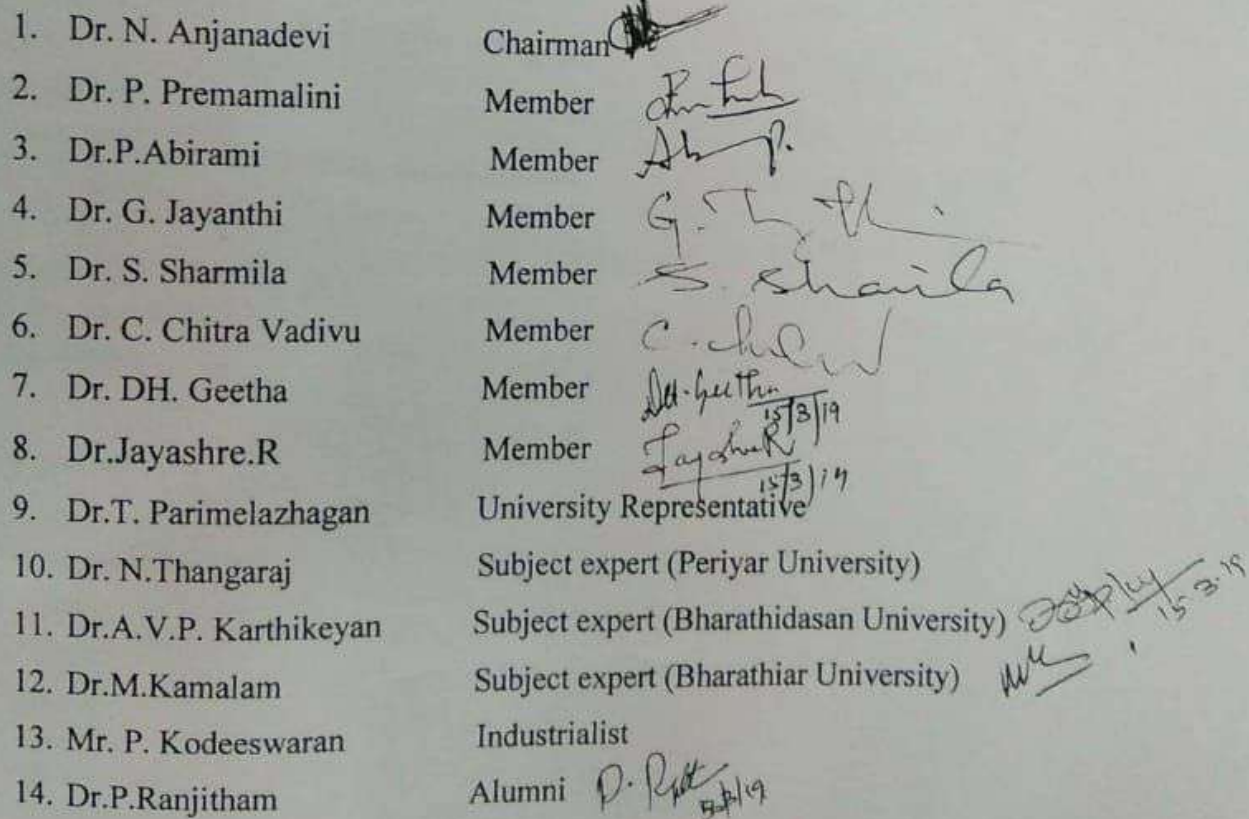 1. Dr. N. Anjanadevi Chairman
2. Dr. P. Premamalini Member
3. Dr.P.Abirami Member
4. Dr. G. Jayanthi Member
5. Dr. S. Sharmila Member S. Sharmila
6. Dr. C. Chitra Vadivu Member
7. Dr. DH. Geetha Member DH. Geetha
15/3/19
8. Dr.Jayashre.R Member Jayashre R
15/3/19
9. Dr.T. Parimelazhagan University Representative
10. Dr. N.Thangaraj Subject expert (Periyar University)
11. Dr.A.V.P. Karthikeyan Subject expert (Bharathidasan University) 15.3.19
12. Dr.M.Kamalam Subject expert (Bharathiar University)
13. Mr. P. Kodeeswaran Industrialist
14. Dr.P.Ranjitham Alumni